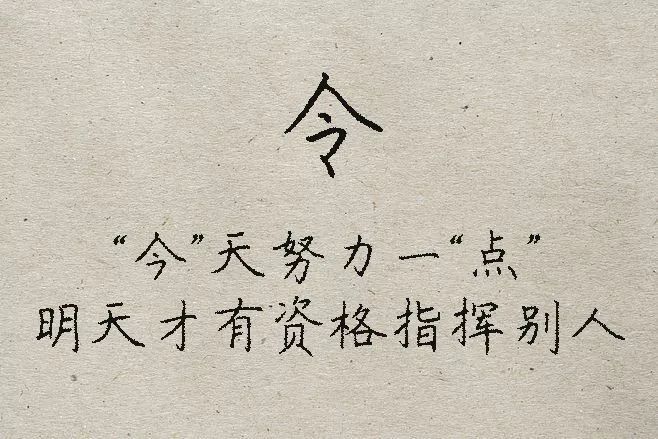 令
“今”天努力一“点”
明天才有资格指挥别人